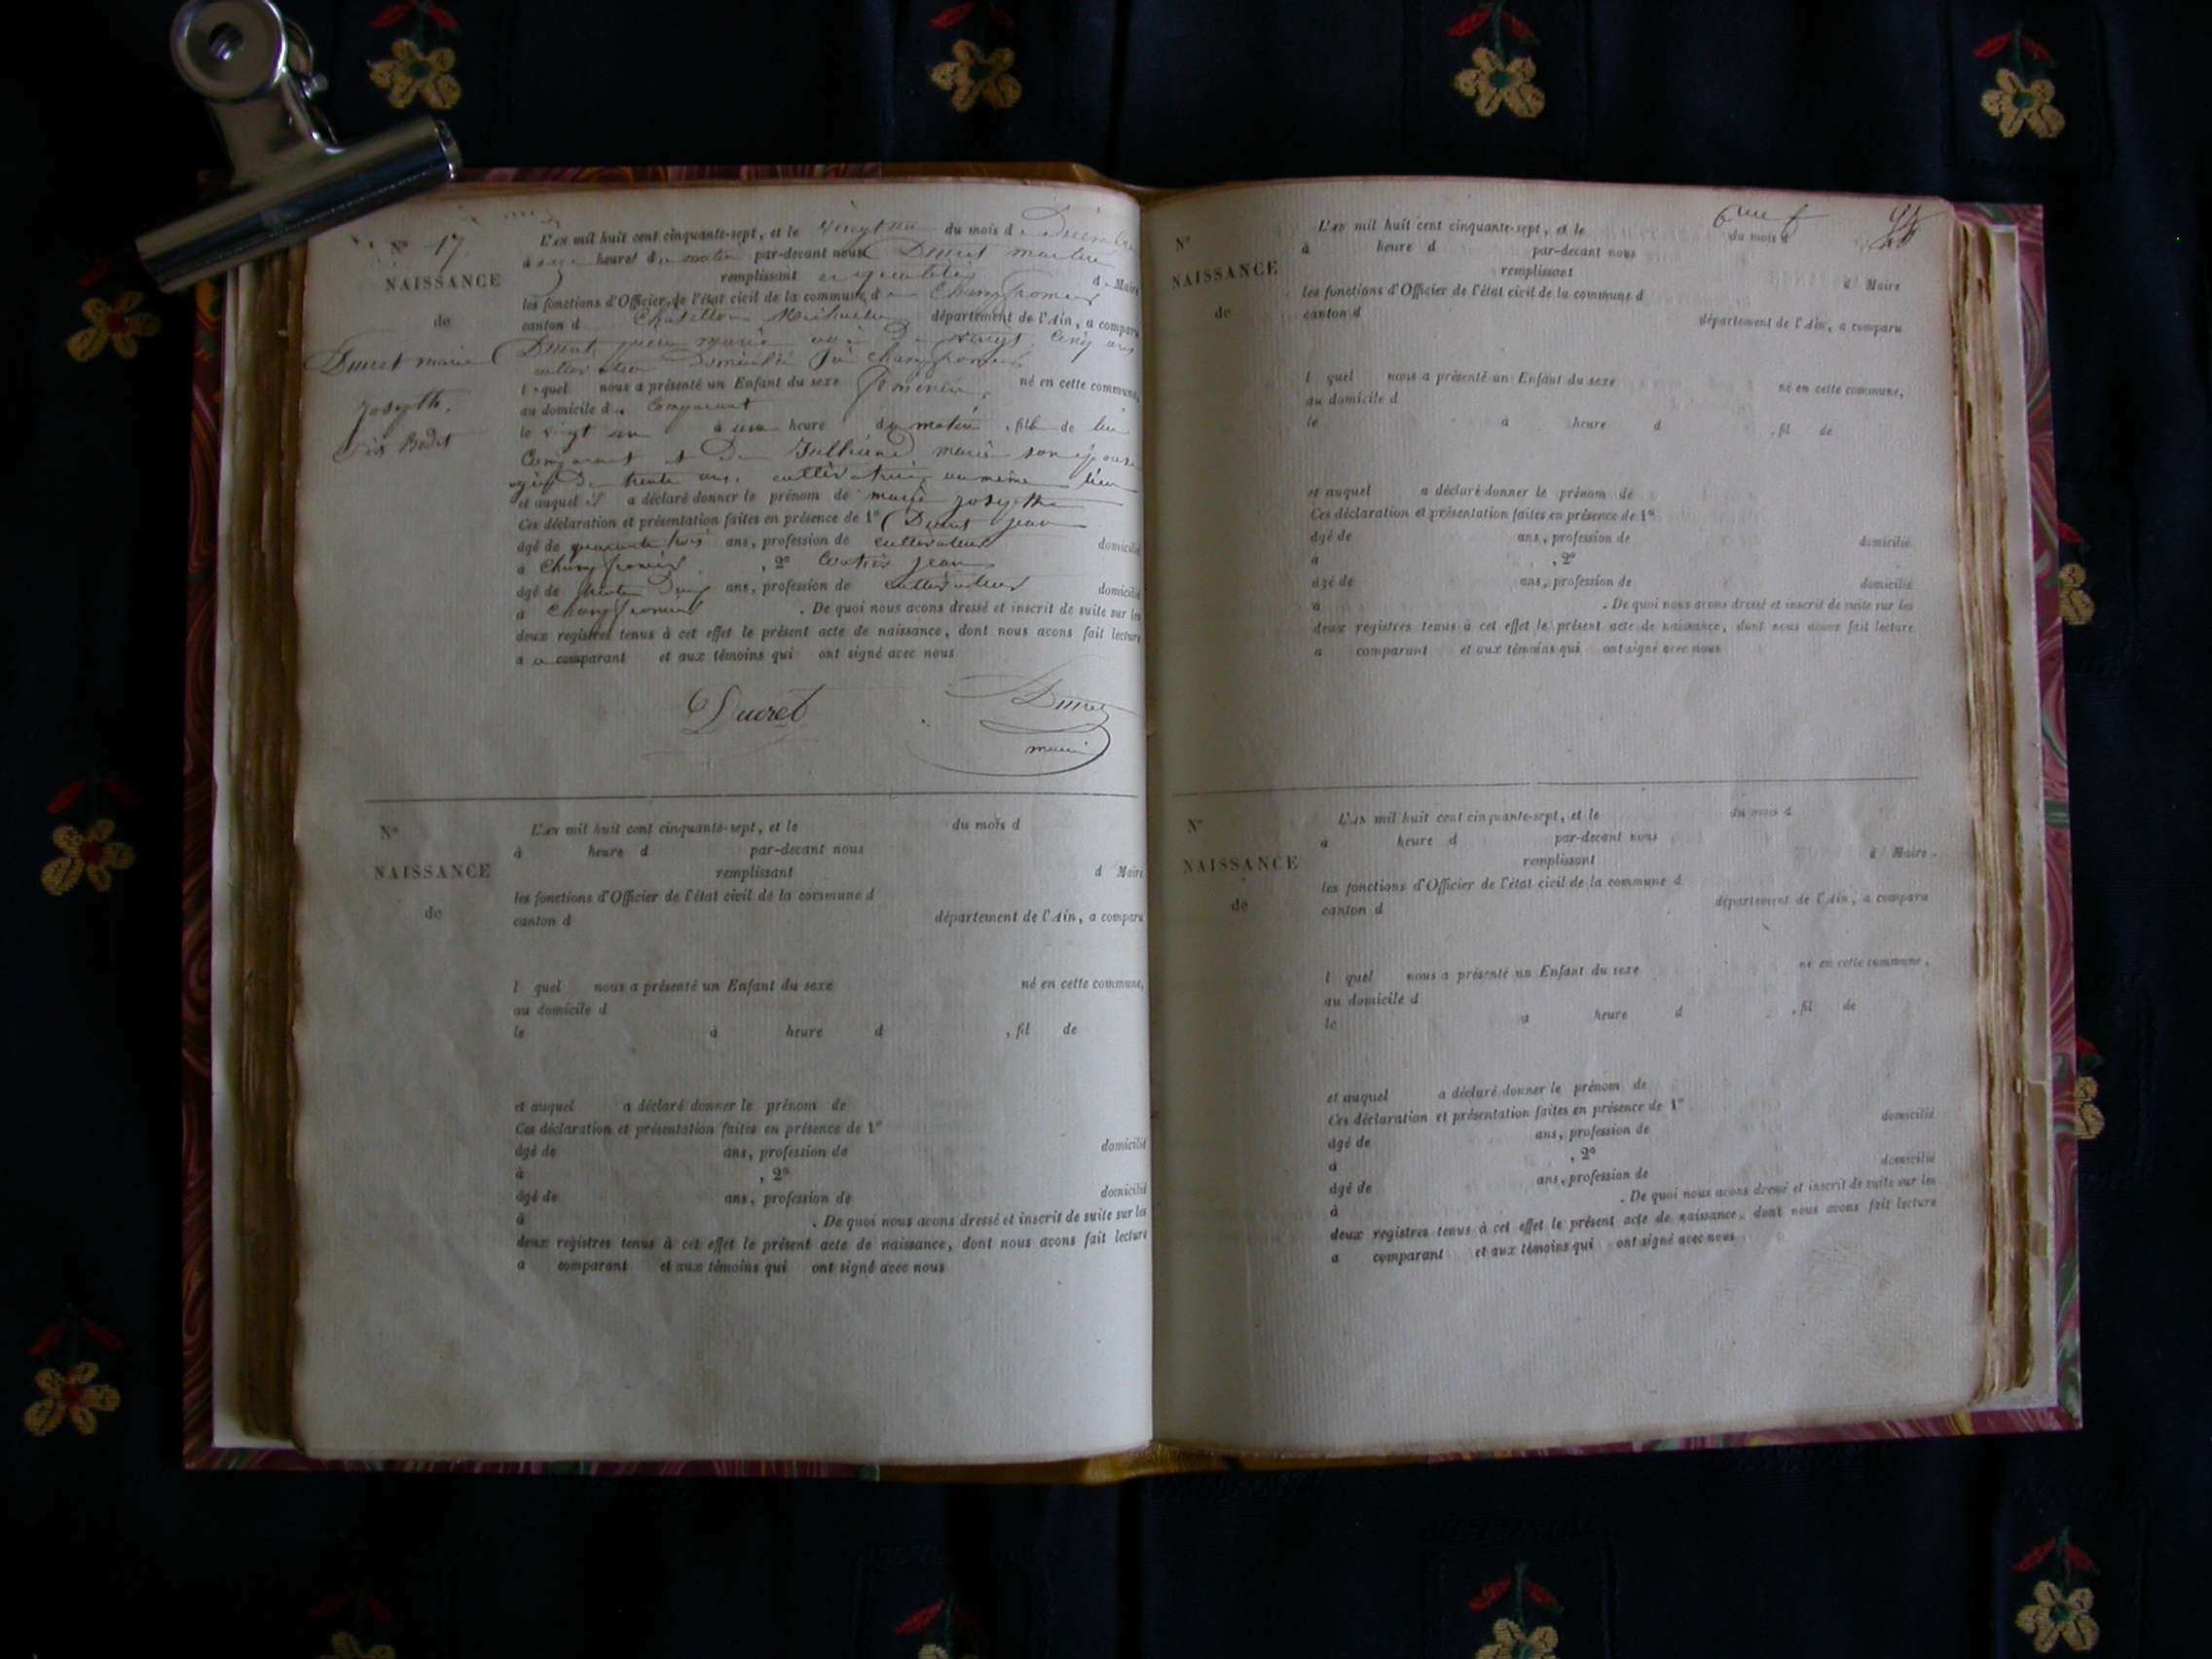 N° 17.
NAISSANCE
de
Ducret marie
Josephte.
L'an mil huit cent cinquante-sept, et le vingt un du mois de décembre
à onze heures du matin par-devant nous Ducret
remplissant en qualité de Maire
les fonctions d'Officier de l'état civil de la commune de Champfromier
canton de Chatillon Michaille département de l'Ain, a comparu
Ducret pierre marie âgé de vingt cinq ans
cultivateur domicilié à Champfromier
lequel nous a présenté un Enfant du sexe féminin, né en cette commune,
au domicile du Comparant
le vingt un à une heure du matin, fille de lui
Comparant et De marie son épouse
âgée De trente ans, cultivatrice au même lieu
et auquel il a déclaré donner le prénom de marie josephte
Ces déclaration et présentation faites en présence de 1° Ducret jean
âgé de quarante trois ans, profession de cultivateur domicilié
à Champfromier , 2° jean
âgé de trente Deux ans, profession de cultivateur domicilié
à Champfromier . De quoi nous avons dressé et inscrit de suite sur les
deux registres tenus à cet effet le présent acte de naissance, dont nous avons fait lecture
a comparant et aux témoins qui ont signé avec nous
Ducret
Ducret
maire
N°
NAISSANCE
de
L'an mil huit cent cinquante-sept, et le du mois d
à heure d par-devant nous
remplissant d Maire
les fonctions d'Officier de l'état civil de la commune d
canton d département de l'Ain, a comparu
l quel nous a présenté un Enfant du sexe né en cette commune,
au domicile d
le à heure d , fil de
et auquel a déclaré donner le prénom de
Ces déclaration et présentation faites en présence de 1°
âgé de ans, profession de domicilié
à , 2°
âgé de ans, profession de domicilié
à . De quoi nous avons dressé et inscrit de suite sur les
deux registres tenus à cet effet le présent acte de naissance, dont nous avons fait lecture
a comparant et aux témoins qui ont signé avec nous
N°
NAISSANCE
de
L'an mil huit cent cinquante-sept, et le du mois d
à heure d par-devant nous
remplissant d Maire
les fonctions d'Officier de l'état civil de la commune d
canton d département de l'Ain, a comparu
l quel nous a présenté un Enfant du sexe né en cette commune,
au domicile d
le à heure d , fil de
et auquel a déclaré donner le prénom de
Ces déclaration et présentation faites en présence de 1°
âgé de ans, profession de domicilié
à , 2°
âgé de ans, profession de domicilié
à . De quoi nous avons dressé et inscrit de suite sur les
deux registres tenus à cet effet le présent acte de naissance, dont nous avons fait lecture
a comparant et aux témoins qui ont signé avec nous
N°
NAISSANCE
de
L'an mil huit cent cinquante-sept, et le du mois d
à heure d par-devant nous
remplissant d Maire
les fonctions d'Officier de l'état civil de la commune d
canton d département de l'Ain, a comparu
l quel nous a présenté un Enfant du sexe né en cette commune,
au domicile d
le à heure d , fil de
et auquel a déclaré donner le prénom de
Ces déclaration et présentation faites en présence de 1°
âgé de ans, profession de domicilié
à , 2°
âgé de ans, profession de domicilié
à . De quoi nous avons dressé et inscrit de suite sur les
deux registres tenus à cet effet le présent acte de naissance, dont nous avons fait lecture
a comparant et aux témoins qui ont signé avec nous